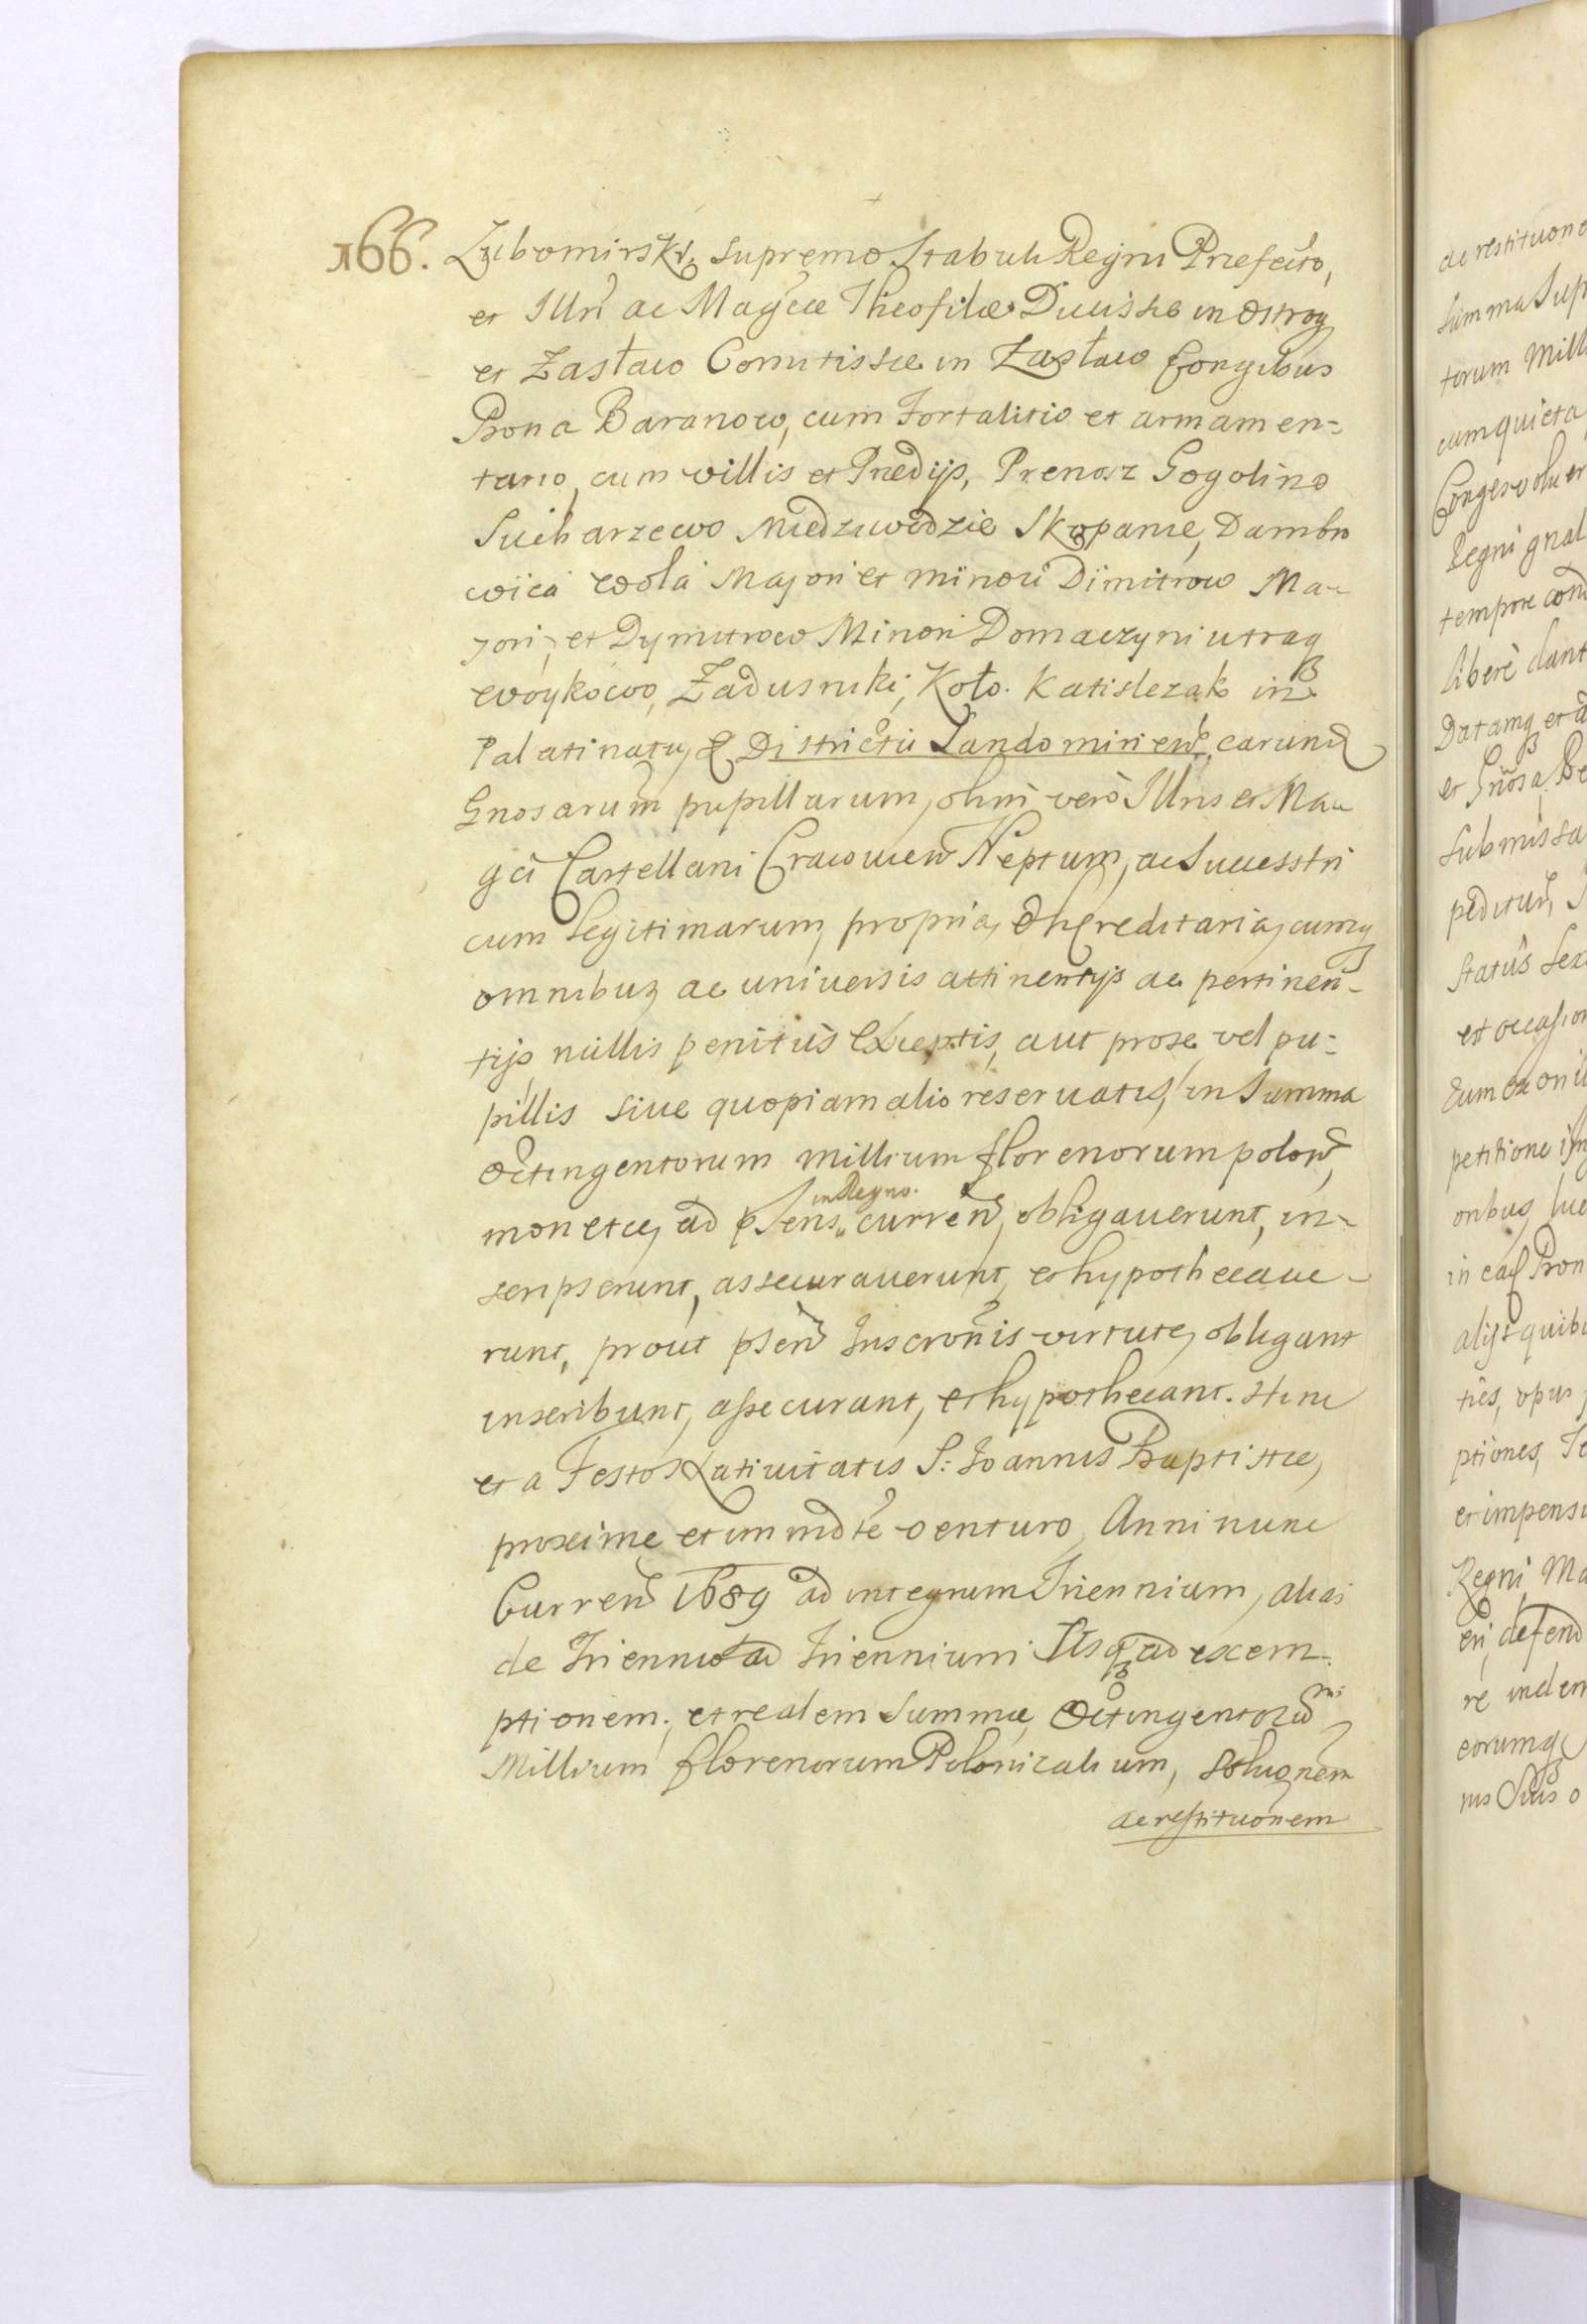 166.
Lubomirski, supremo Stabuli Regni Præfecto,
et Illri ac Magcæ Theofilæ Ducissæ in Ostrog
et Zasław Comitissæ in Zasław Congibus
Bona Baranow, cum Fortalitio et armamen=
tario, cum villis et Prædijs, Prenosz Gogolino
Sucharzewo Niedzwiedzie Skopanie, Dambro
wica Wola Majori et minori Dimitrow Ma-
jori, et Dymitrow Minori Domaczyni utraq
Woykowo, Zadusniki, Koło. Katislezak in
Palatinatu, & Districtu Sandomirien, earund
Gnosarum pupillarum, olim vero Illris et Ma-
gci Castellani Cracovien Neptum, ac Successri
cum Legitimarum, propria, & hæreditaria, cumq
omnibus ac universis attinentijs ac pertinen-
tijs nullis penitus Exceptis, aut pro se vel pu=
pillis sive quopiam alio reservatis, in Summa
Octingentorum millium florenorum polon,
in Regno.
monetæ, ad psens curren, obligaverunt, in-
scripserunt, assecuraverunt, et hypothecave-
runt, prout psen Inscronis virtute, obligant
inscribunt, assecurant, et hypothecant. Hinc
et a Festo Nativitatis S: Joannis Baptistæ,
proxime et immdte venturo, Anni nunc
Curren 1689 ad integrum Triennium, alias
de Triennio ad Triennium Usq ad exem-
ptionem, et realem Summæ Octingentoru
Millium florenorum Polonicalium, Solugnem
ac restituonem
ac restituone
Summa Sup
torum Mill
cum quieta
Conges volu er
Regni gnal
tempore cond
libere dant
Datamq et a
et Gnosa
Submissa
peditur,
Status
et occasion
petitione
onbus
in
alijs quibu
ties, opus
ptiones,
et impens
Regni Ma
eri, defend
re indem
eorumq
suis o